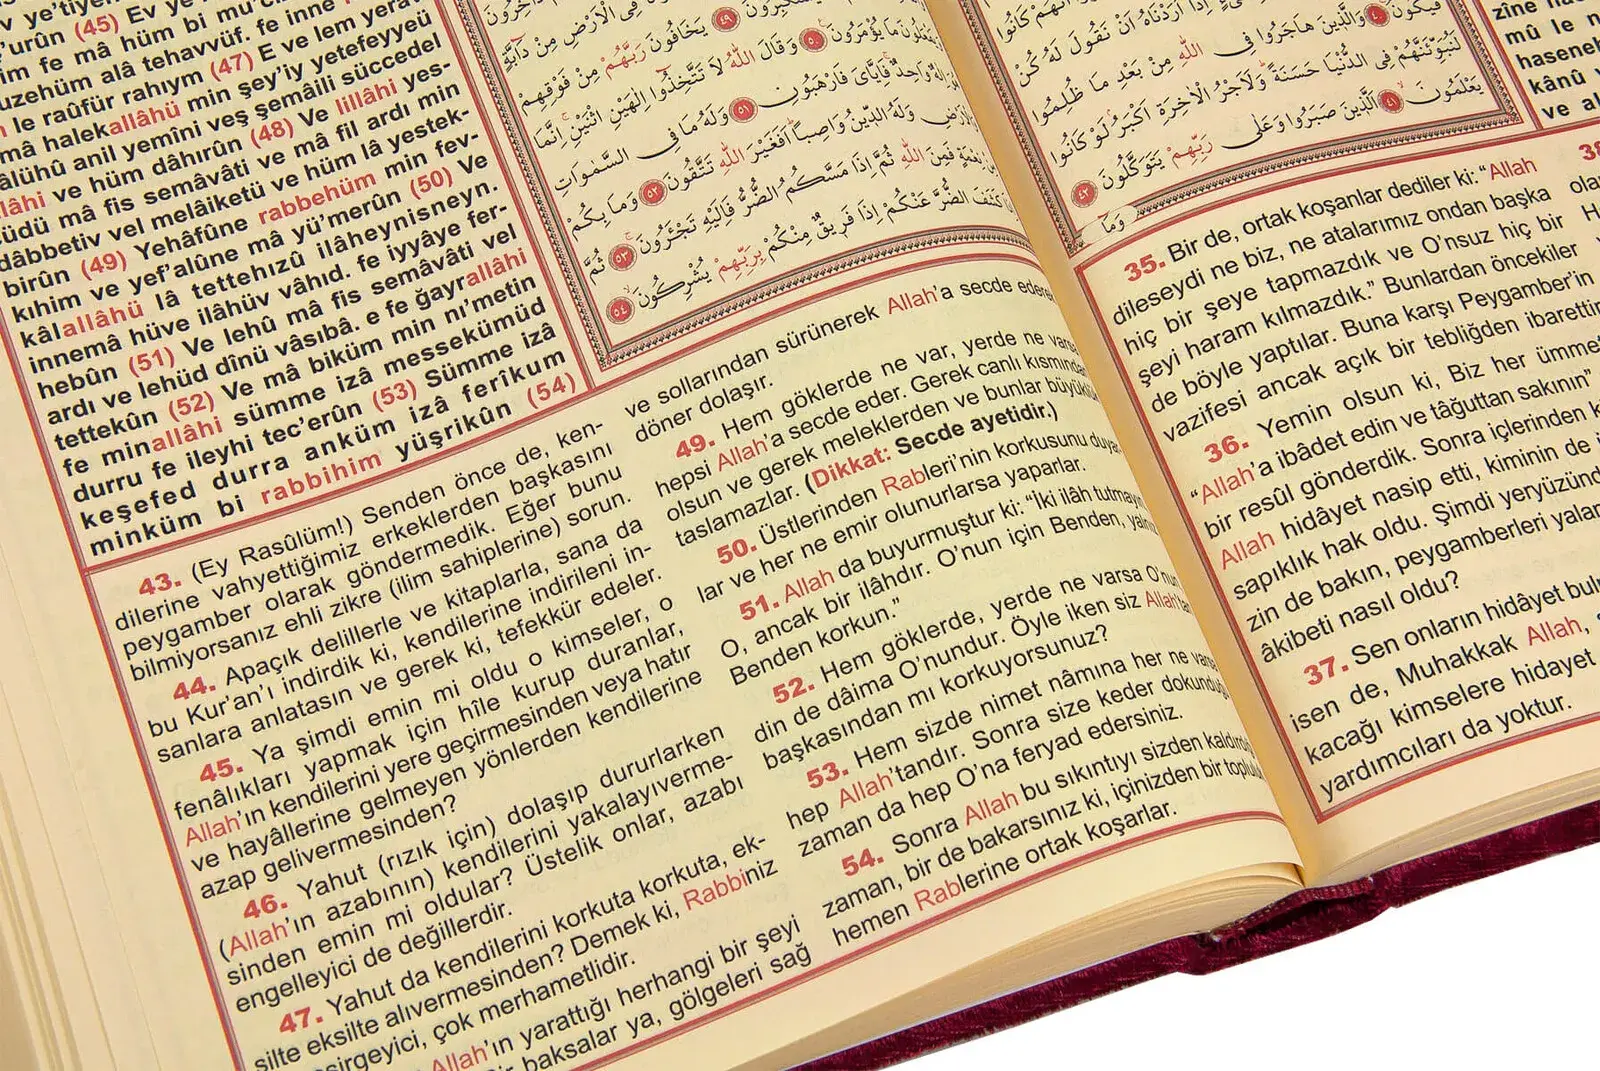 (45) Ev ye
'urûn
im fe mâ hüm bi mu'c
uzehüm alâ tehavvüf. fe inne
le raûfür rahıym (47) E ve lem yerav
mâ halekallâhü min şey'iy yetefeyyeü
âlühû anil yemîni veş şemâili süccedel
lâhi ve hüm dâhırûn (48) Ve lillâhi yes-
cüdü mâ fis semâvâti ve mâ fil ardı min
dâbbetiv vel melâiketü ve hüm lâ yestek-
birûn (49) Yehâfûne rabbehüm min fev-
kıhim ve yef'alûne mâ yü'merûn (50) Ve
kâlallâhü lâ tettehızû ilâheynisneyn.
innemâ hüve ilâhüv vâhıd. fe iyyâye fer-
hebûn (51) Ve lehû mâ fis semâvâti vel
ardı ve lehüd dînü vâsıbâ. e fe ğayrallâhi
tettekûn (52) Ve mâ biküm min nı'metin
fe minallâhi sümme izâ messekümüd
durru fe ileyhi tec'erûn (53) Sümme izâ
keşefed durra anküm izâ ferîkum
minküm bi rabbihim yüşrikûn (54)
يَخَافُونَ رَبَّهُمْ مِنْ فَوْقِهِمْ
مَا يُؤْمَرُونَ ٥٠ وَقَالَ اللّٰهُ لَا تَتَّخِذُوا اِلٰهَيْنِ اثْنَيْنِ اِنَّمَا
اِلٰهٌ وَاحِدٌ فَاِيَّايَ فَارْهَبُونِ ٥١ وَلَهُ مَا فِي السَّمٰوَاتِ
وَلَهُ الدّ۪ينُ وَاصِبًا اَفَغَيْرَ اللّٰهِ تَتَّقُونَ ٥٢ وَمَا بِكُمْ
نِعْمَةٍ فَمِنَ اللّٰهِ ثُمَّ اِذَا مَسَّكُمُ الضُّرُّ فَاِلَيْهِ تَجْـَٔرُونَ ٥٣ ثُمَّ
كَشَفَ الضُّرَّ عَنْكُمْ اِذَا فَر۪يقٌ مِنْكُمْ بِرَبِّهِمْ يُشْرِكُونَ ٥٤
43. (Ey Rasûlüm!) Senden önce de, ken-
dilerine vahyettiğimiz erkeklerden başkasını
peygamber olarak göndermedik. Eğer bunu
bilmiyorsanız ehli zikre (ilim sahiplerine) sorun.
44. Apaçık delillerle ve kitaplarla, sana da
bu Kur'an'ı indirdik ki, kendilerine indirileni in-
sanlara anlatasın ve gerek ki, tefekkür edeler.
45. Ya şimdi emin mi oldu o kimseler, o
fenâlıkları yapmak için hîle kurup duranlar,
Allah'ın kendilerini yere geçirmesinden veya hatır
ve hayâllerine gelmeyen yönlerden kendilerine
azap gelivermesinden?
46. Yahut (rızık için) dolaşıp dururlarken
(Allah'ın azabının) kendilerini yakalayıverme-
sinden emin mi oldular? Üstelik onlar, azabı
engelleyici de değillerdir.
47. Yahut da kendilerini korkuta korkuta, ek-
silte eksilte alıvermesinden? Demek ki, Rabbiniz
esirgeyici, çok merhametlidir.
Allah'ın yarattığı herhangi bir şeyi
baksalar ya, gölgeleri sağ
ve sollarından sürünerek Allah'a secde ederek
döner dolaşır.
49. Hem göklerde ne var, yerde ne varsa
hepsi Allah'a secde eder. Gerek canlı kısmından
olsun ve gerek meleklerden ve bunlar büyüklük
taslamazlar. (Dikkat: Secde ayetidir.)
50. Üstlerinden Rableri'nin korkusunu duyar-
lar ve her ne emir olunurlarsa yaparlar.
51. Allah da buyurmuştur ki: "İki ilâh tutmayın
O, ancak bir ilâhdır. O'nun için Benden, yalnız
Benden korkun."
52. Hem göklerde, yerde ne varsa O'nun
din de dâima O'nundur. Öyle iken siz Allah'tan
başkasından mı korkuyorsunuz?
53. Hem sizde nimet nâmına her ne varsa
hep Allah'tandır. Sonra size keder dokunduğu
zaman da hep O'na feryad edersiniz.
54. Sonra Allah bu sıkıntıyı sizden kaldırdığı
zaman, bir de bakarsınız ki, içinizden bir topluluk
hemen Rablerine ortak koşarlar.
اِذَا اَرَدْنَاهُ اَنْ نَقُولَ لَهُ كُنْ
فَيَكُونُ ٤٠ وَالَّذ۪ينَ هَاجَرُوا فِي اللّٰهِ مِنْ بَعْدِ مَا ظُلِمُوا
لَنُبَوِّئَنَّهُمْ فِي الدُّنْيَا حَسَنَةً وَلَاَجْرُ الْاٰخِرَةِ اَكْبَرُ لَوْ كَانُوا
يَعْلَمُونَ ٤١ اَلَّذ۪ينَ صَبَرُوا وَعَلٰى رَبِّهِمْ يَتَوَكَّلُونَ ٤٢
وَمَا
35. Bir de, ortak koşanlar dediler ki: "Allah
dileseydi ne biz, ne atalarımız ondan başka
hiç bir şeye tapmazdık ve O'nsuz hiç bir
şeyi haram kılmazdık." Bunlardan öncekiler
de böyle yaptılar. Buna karşı Peygamber'in
vazifesi ancak açık bir tebliğden ibarettir.
36. Yemin olsun ki, Biz her ümmete
"Allah'a ibâdet edin ve tâğuttan sakının"
bir resûl gönderdik. Sonra içlerinden k
Allah hidâyet nasip etti, kiminin de
sapıklık hak oldu. Şimdi yeryüzünde
zin de bakın, peygamberleri yalan
âkibeti nasıl oldu?
37. Sen onların hidâyet bulm
isen de, Muhakkak Allah,
kacağı kimselere hidayet
yardımcıları da yoktur.
zîne ha
mû le n
haseneh
kânû
ve al
38
olar